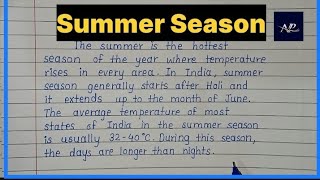 Summer Season
NP
The summer is the hottest
season of the year where temperature
rises in every area. In India, summer
season generally starts after Holi and
it extends up to the month of June.
The average temperature of most
states of India in the summer season
is usually 32-40°C. During this season,
the days are longer than nights.